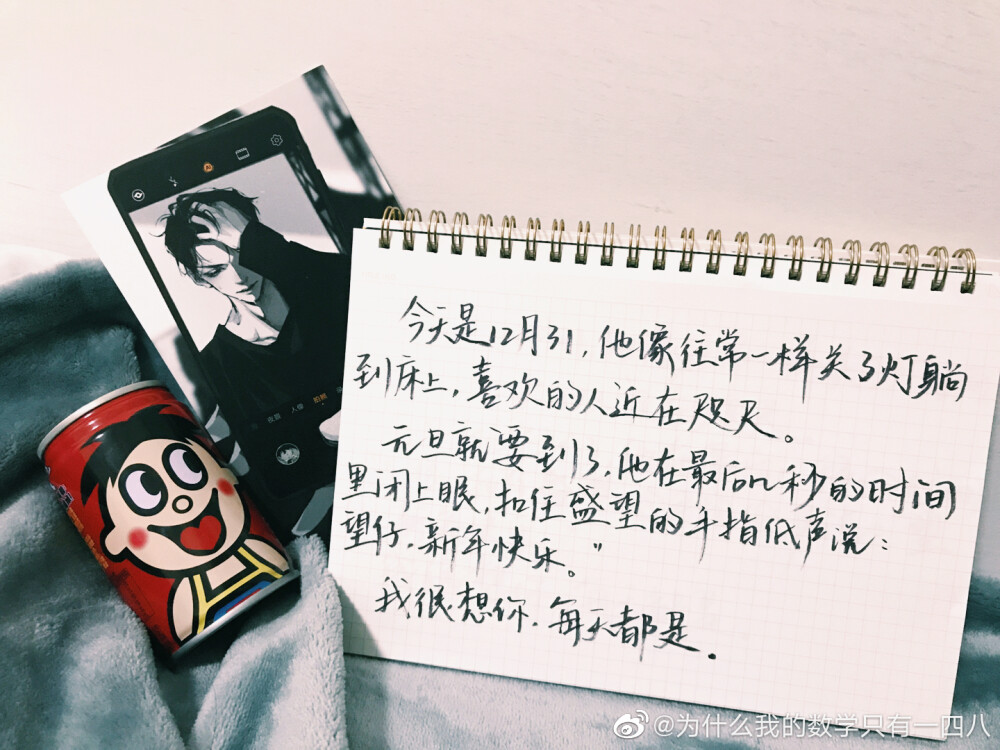 今天是12月31,他像往常一样关了灯躺
到床上,喜欢的人近在咫尺。
元旦就要到了,他在最后n秒的时间
里闭上眼,扣住盛望的手指低声说:
望仔,新年快乐。”
我很想你,每天都是。
@为什么我的数学只有一四八